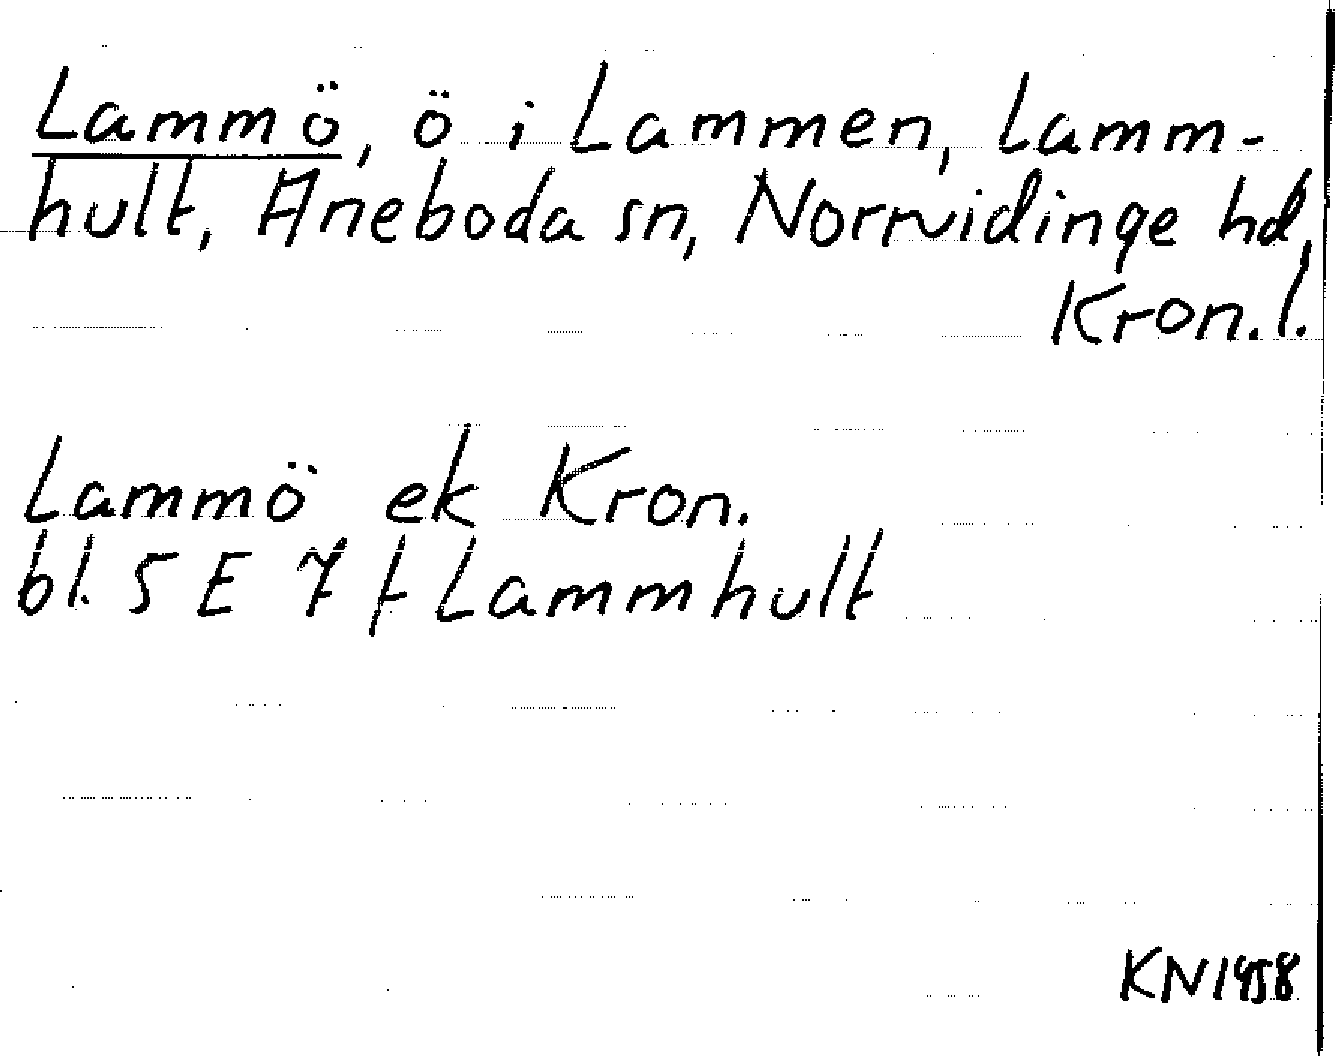 Lammö, ö i Lammen, Lamm-
hult, Aneboda sn, Norrvidinge hd,
Kron.l.
Lammö ek Kron.
bl. 5 E 7 f Lammhult
KN 1958